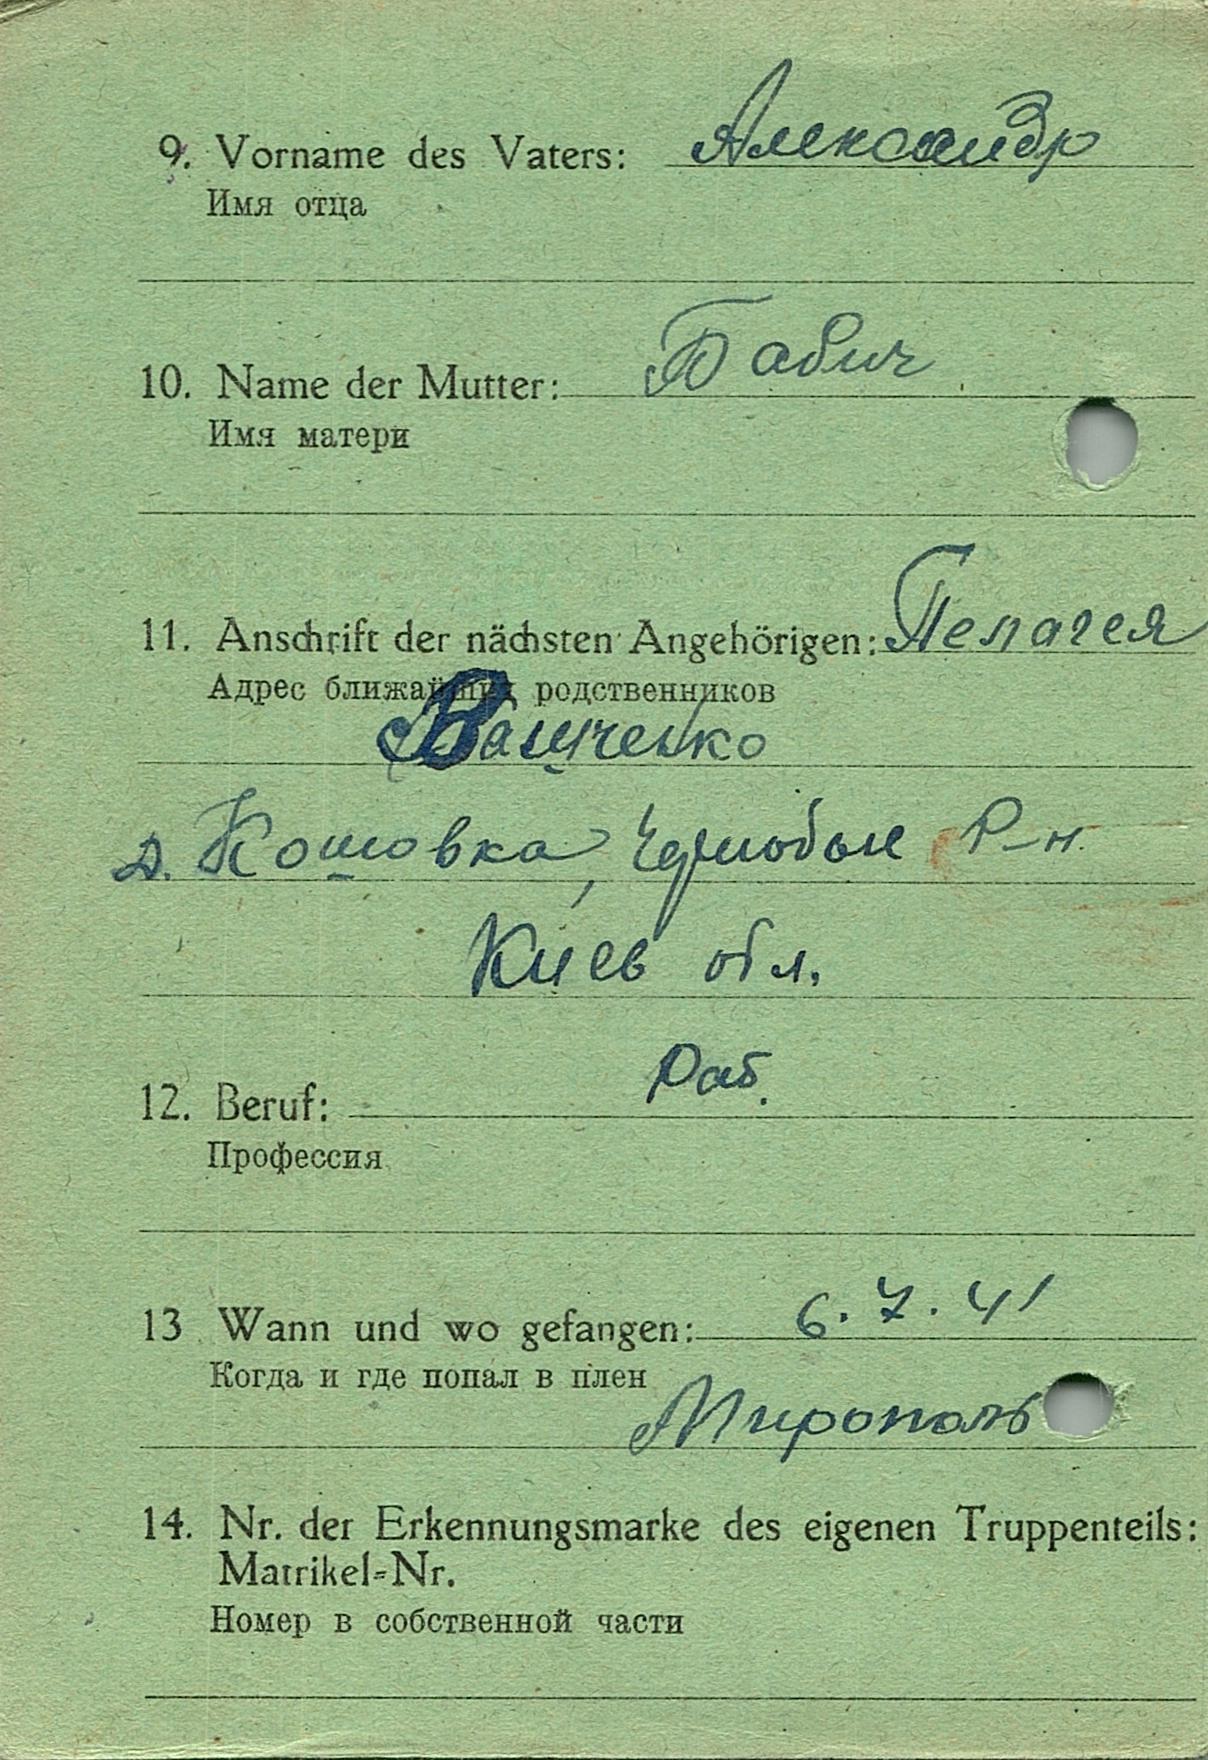 9. Vorname des Vaters: Александр
Имя отца
10. Name der Mutter: Бабич
Имя матери
11. Anschrift der nächsten Angehörigen: Пелагея
Адрес ближайших родственников
Ващченко
д. Кошовка, Чернобыл Р-н.
Киев обл.
12. Beruf: Раб.
Профессия
13 Wann und wo gefangen: 6. 7. 41
Когда и где попал в плен
Мирополь
14. Nr. der Erkennungsmarke des eigenen Truppenteils:
Matrikel=Nr.
Номер в собственной части